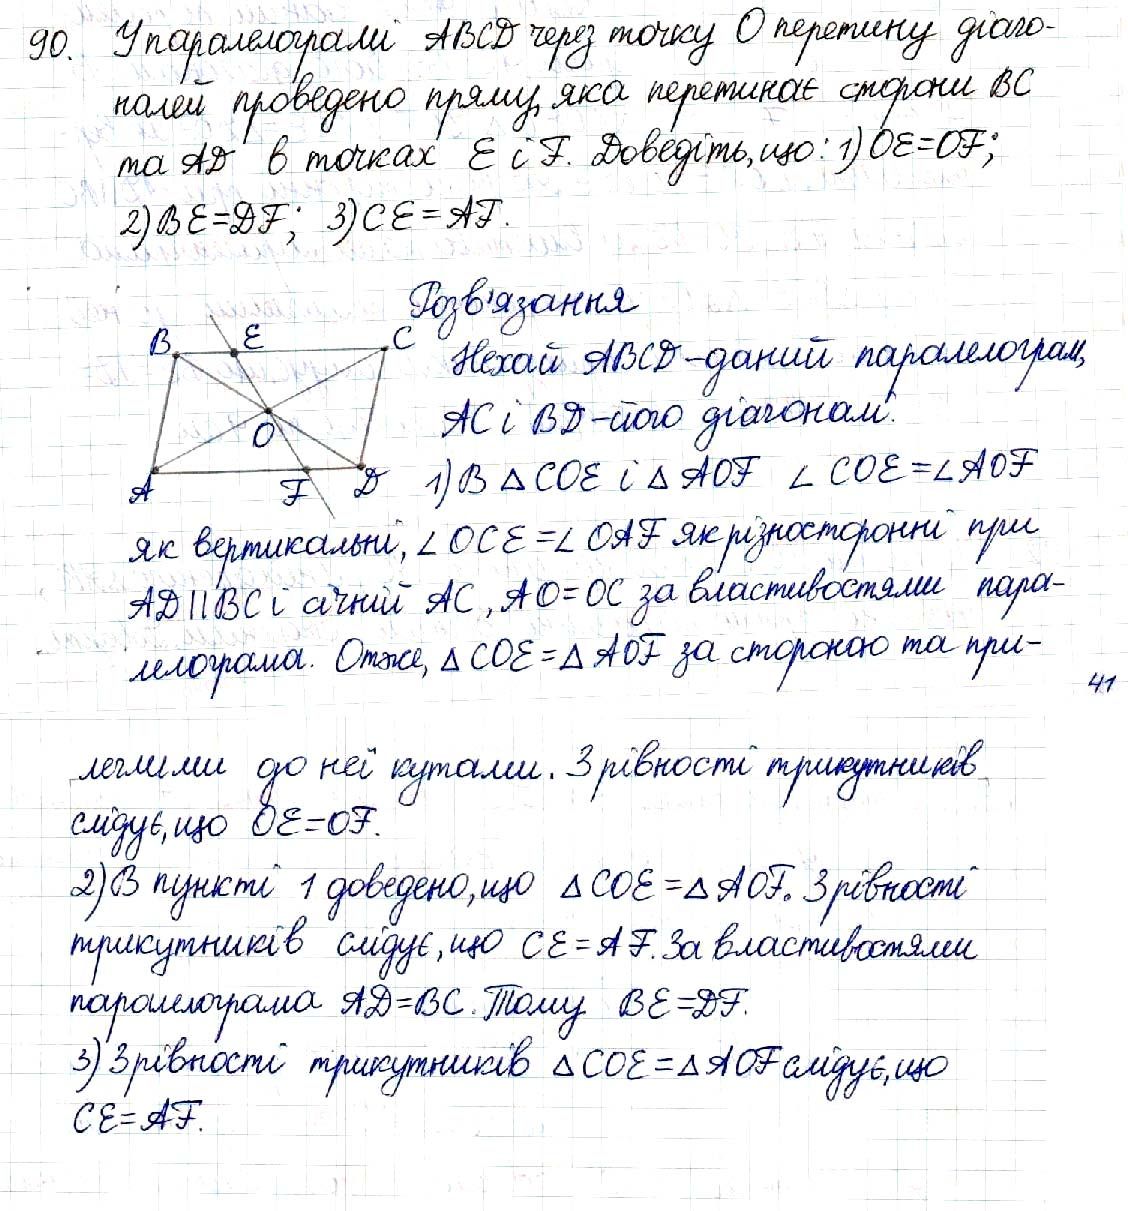 90. У паралелограмі ABCD через точку O перетину діаго-
налей проведено пряму, яка перетинає сторони BC
та AD в точках E і F. Доведіть, що: 1) OE=OF;
2) BE=DF; 3) CE=AF.
Розв'язання
B E C
O
A F D
Нехай ABCD - даний паралелограм,
AC і BD - його діагоналі.
1) В △ COE і △ AOF ∠ COE = ∠ AOF
як вертикальні, ∠ OCE = ∠ OAF як різносторонні при
AD || BC і січній AC, AO = OC за властивостями пара-
лелограма. Отже, △ COE = △ AOF за стороною та при-
41
леглими до неї кутами. З рівності трикутників
слідує, що OE=OF.
2) В пункті 1 доведено, що △ COE = △ AOF. З рівності
трикутників слідує, що CE = AF. За властивостями
паралелограма AD=BC. Тому BE=DF.
3) З рівності трикутників △ COE = △ AOF слідує, що
CE=AF.